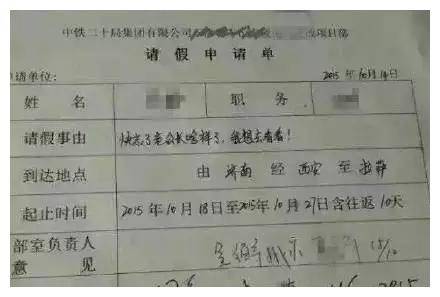 中铁二十局集团有限公司 改项目部
请假申请单
申请单位： 2015年10月14日
姓名 职务
请假事由 快忘了老公长啥样了，我想去看看！
到达地点 由 济南 经 西安 至 拉萨
起止时间 2015年10月18日至2015年10月27日含往返10天
部室负责人
意见 15/10
2015